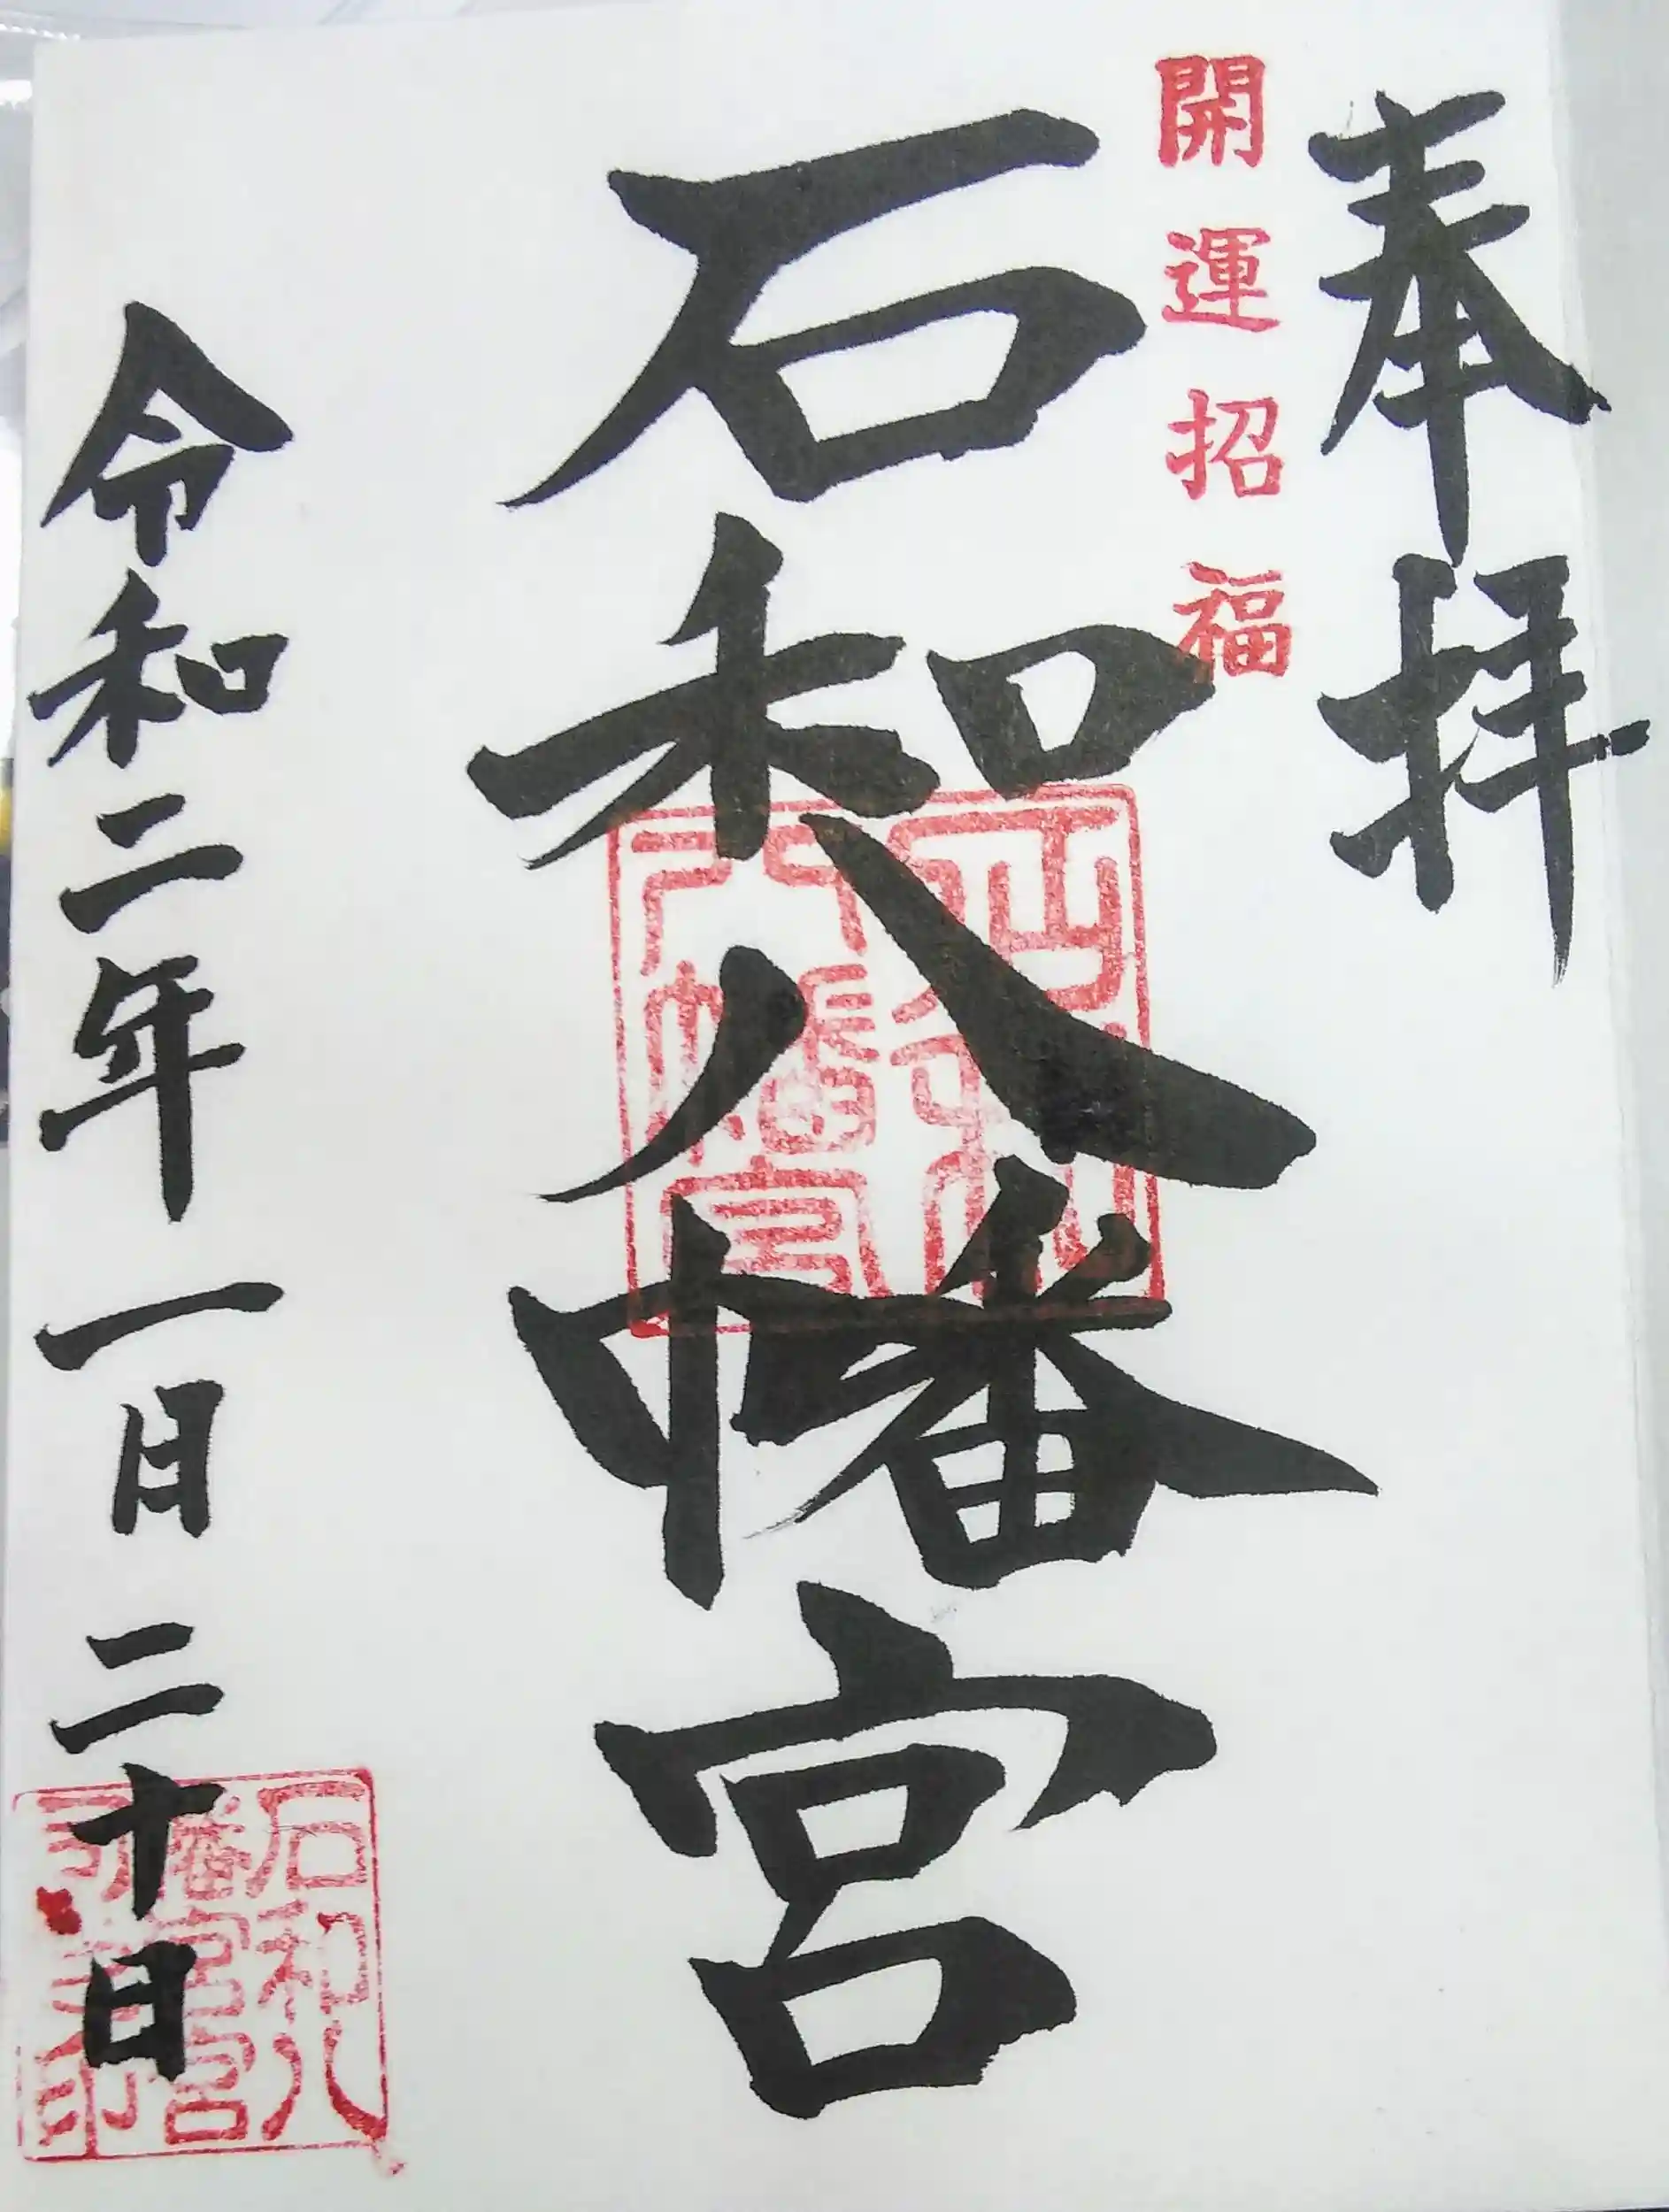 奉拝
開運招福
石和八幡宮
令和二年一月二十日
石和八
幡宮宮
司之印